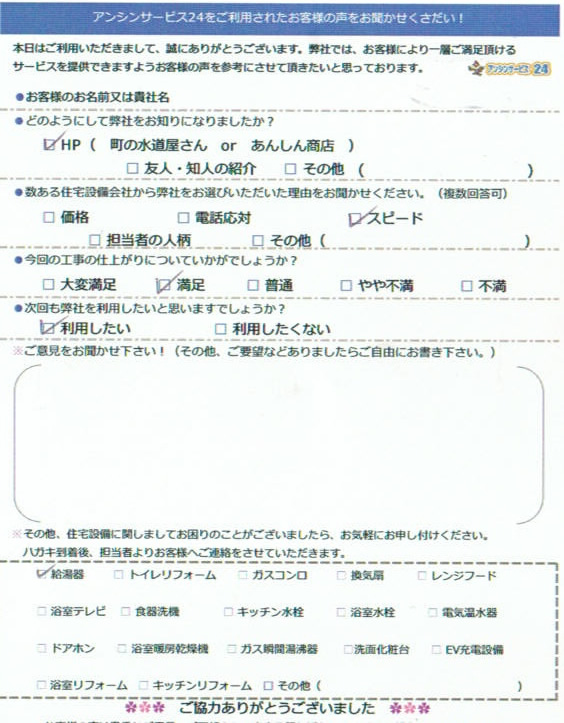 アンシンサービス24をご利用されたお客様の声をお聞かせくさだい！
本日はご利用いただきまして、誠にありがとうございます。弊社では、お客様により一層ご満足頂ける
サービスを提供できますようお客様の声を参考にさせて頂きたいと思っております。 アンシンサービス 24
●お客様のお名前又は貴社名
●どのようにして弊社をお知りになりましたか？
☑HP（ 町の水道屋さん or あんしん商店 ）
□ 友人・知人の紹介 □ その他 （ ）
●数ある住宅設備会社から弊社をお選びいただいた理由をお聞かせください。（複数回答可）
□ 価格 □ 電話応対 ☑スピード
□ 担当者の人柄 □ その他（ ）
●今回の工事の仕上がりについていかがでしょうか？
□ 大変満足 ☑ 満足 □ 普通 □ やや不満 □ 不満
●次回も弊社を利用したいと思いますでしょうか？
☑利用したい □ 利用したくない
※ご意見をお聞かせ下さい！（その他、ご要望などありましたらご自由にお書き下さい。）
※その他、住宅設備に関しましてお困りのことがございましたら、お気軽にお申し付けください。
ハガキ到着後、担当者よりお客様へご連絡をさせていただきます。
☑ 給湯器 □ トイレリフォーム □ ガスコンロ □ 換気扇 □ レンジフード
□ 浴室テレビ □ 食器洗機 □ キッチン水栓 □ 浴室水栓 □ 電気温水器
□ ドアホン □ 浴室暖房乾燥機 □ ガス瞬間湯沸器 □洗面化粧台 □ EV充電設備
□ 浴室リフォーム □ キッチンリフォーム □ その他（ ）
ご協力ありがとうございました